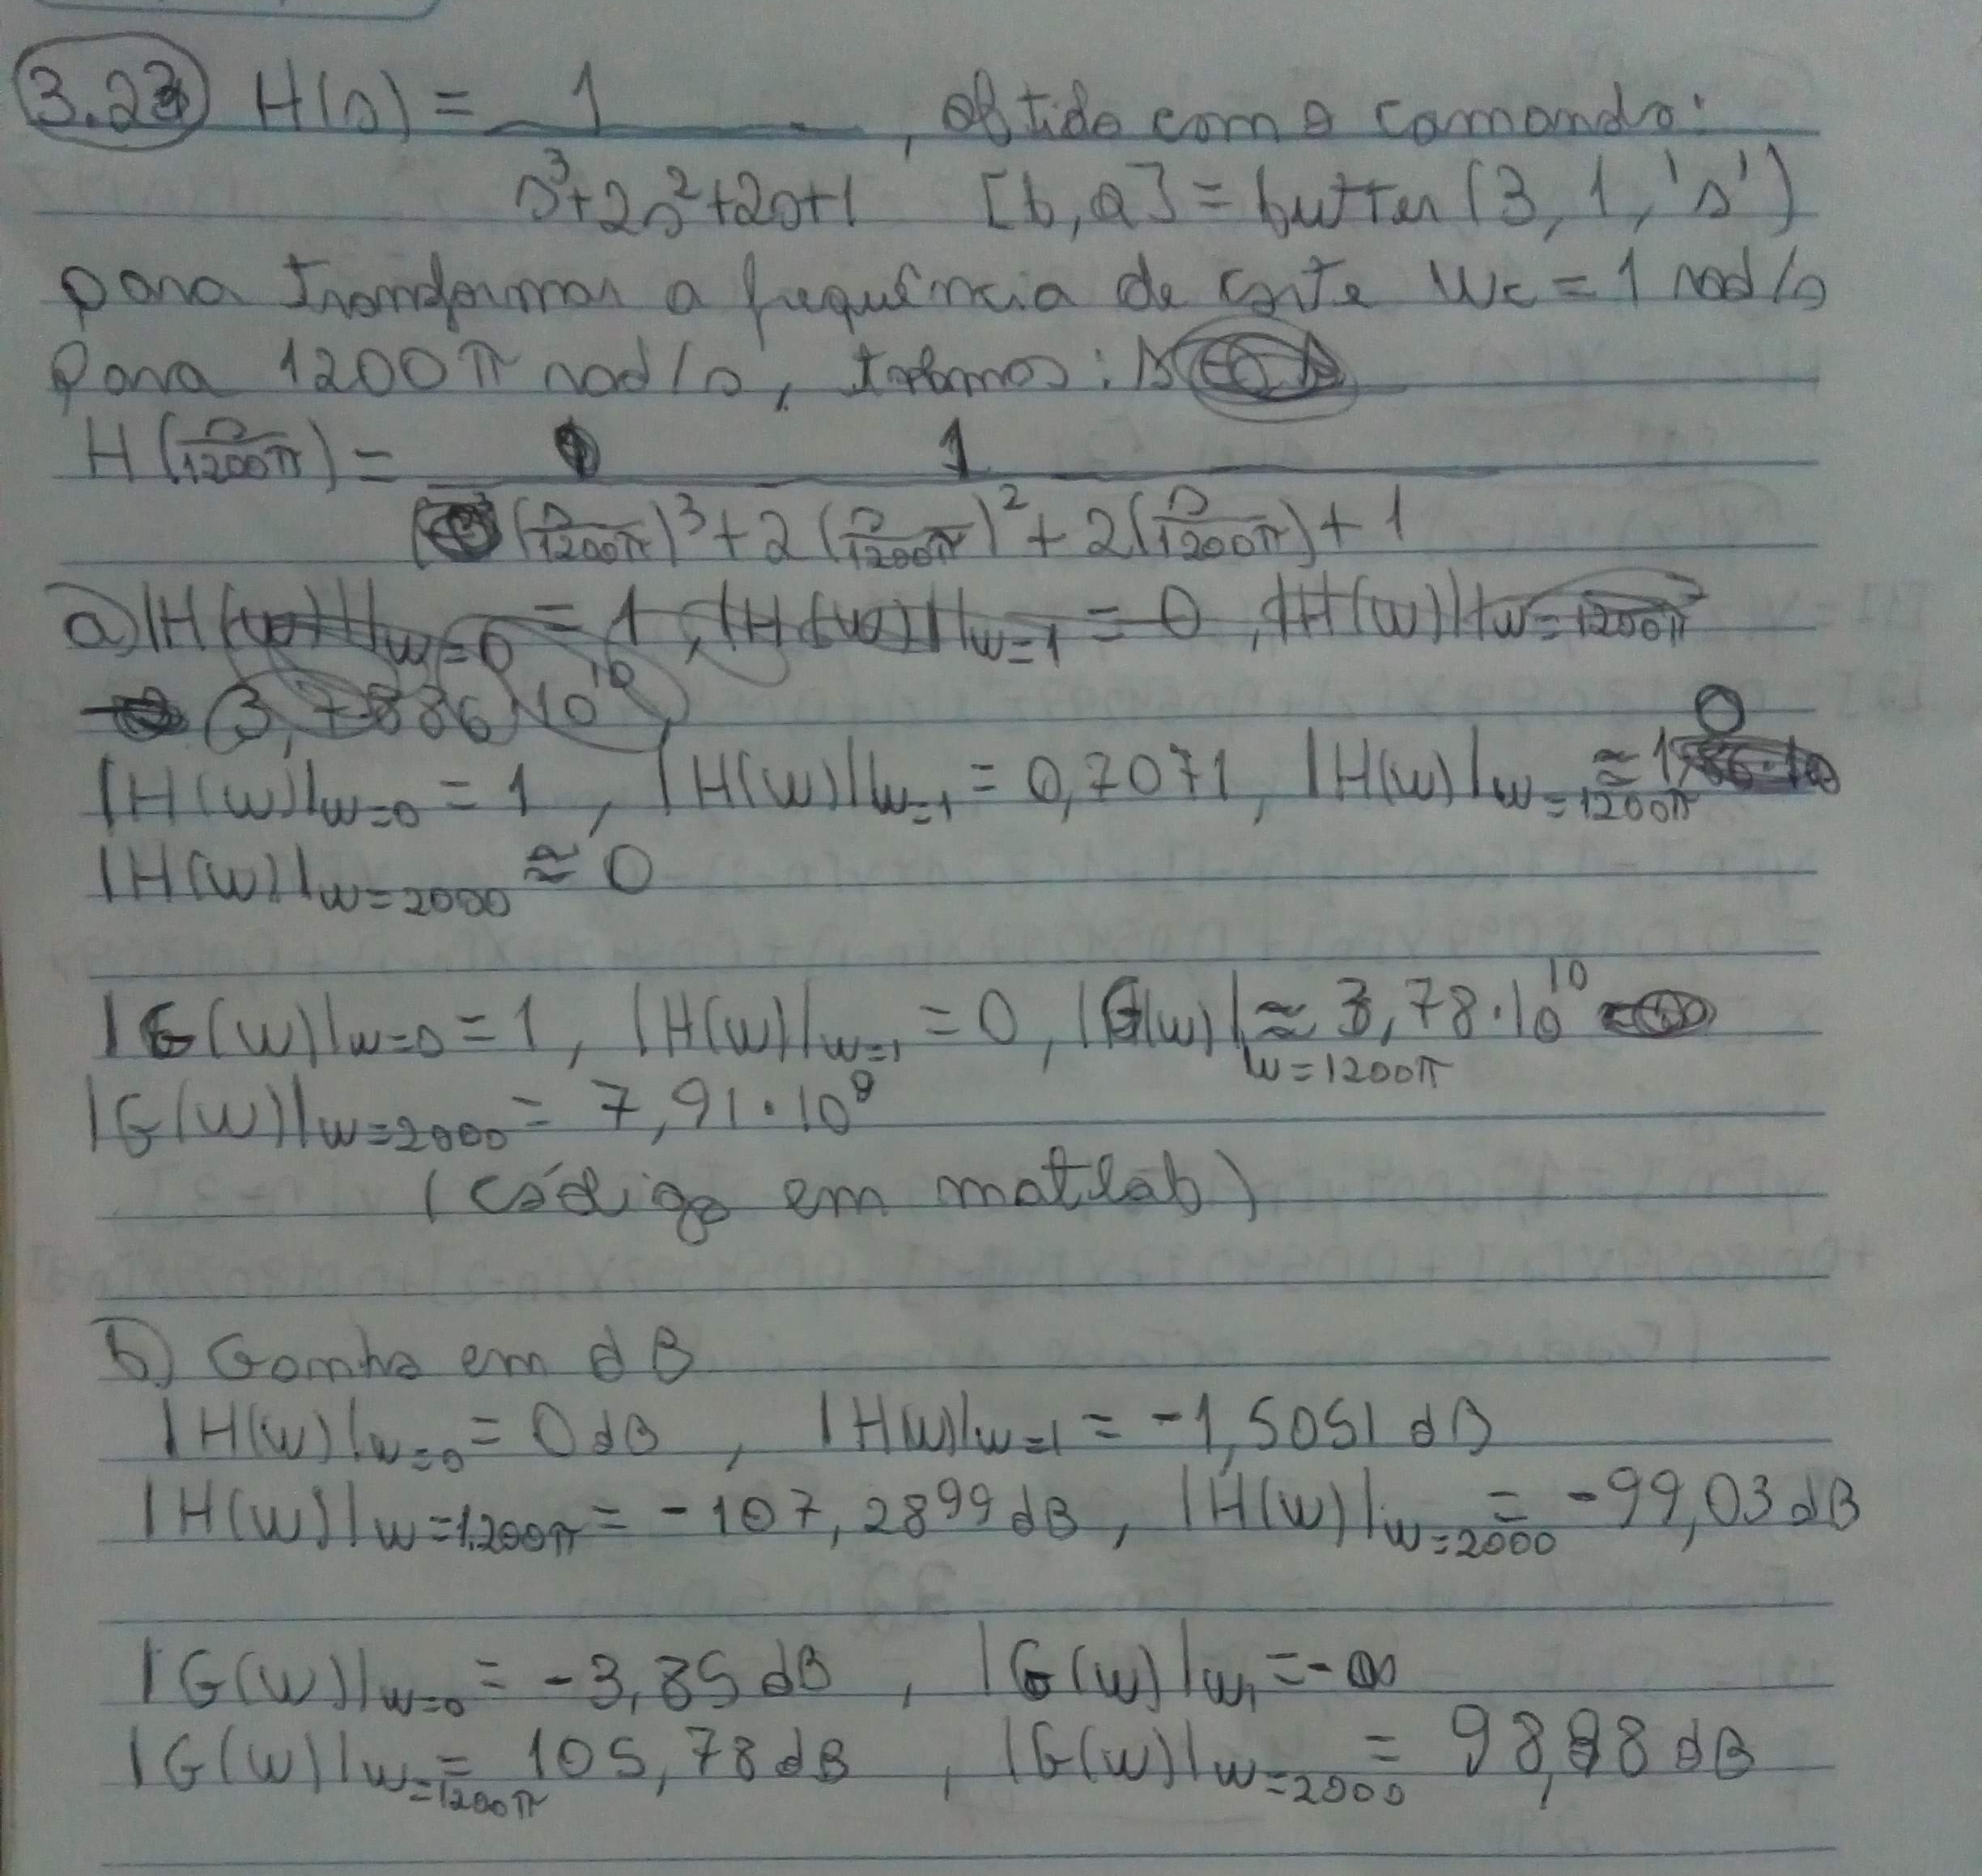 3.23 H(s) = 1 / (s³+2s²+2s+1) , obtido com o comando:
[b,a] = butter(3,1,'s')
para transformar a frequência de corte Wc = 1 rad/s
para 1200π rad/s, :
H(s/1200π) = 1 / ((s/1200π)³ + 2(s/1200π)² + 2(s/1200π) + 1
a) |H(w)||w=0 = 1, |H(w)||w=1 = 0, |H(w)||w=1200π
(3,7886 10¹⁰)
|H(w)|w=0 = 1 , |H(w)|w=1 = 0,7071, |H(w)|w=1200π ≈ 0
|H(w)|w=2000 ≈ 0
|G(w)|w=0 = 1, |H(w)|w=1 = 0, |G(w)|w=1200π ≈ 3,78·10¹⁰
|G(w)|w=2000 = 7,91·10⁹
(código em matlab)
b) Ganho em dB
|H(w)|w=0 = 0 dB , |H(w)|w=1 = -1,5051 dB
|H(w)|w=1200π = -107,2899 dB, |H(w)|w=2000 = -99,03 dB
|G(w)|w=0 = -3,85 dB , |G(w)|w1 = -∞
|G(w)|w=1200π = 105,78 dB , |G(w)|w=2000 = 98,88 dB